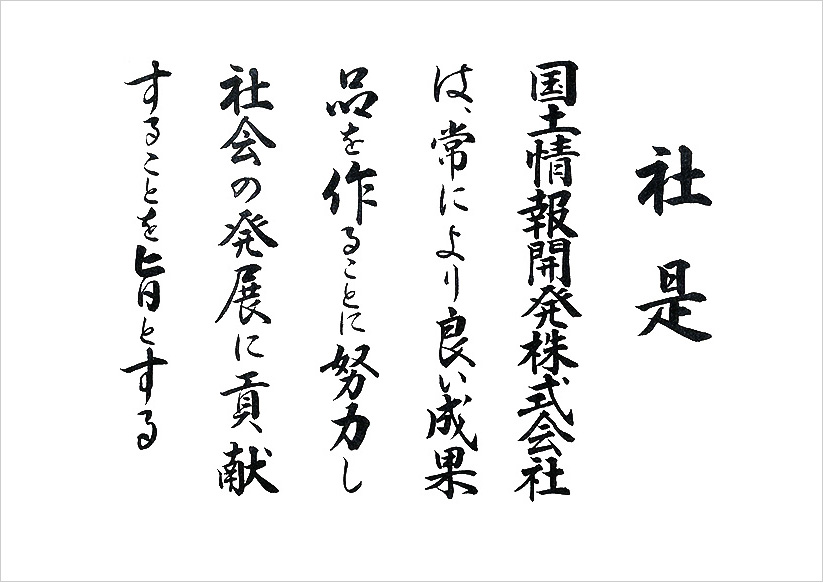 社是
国土情報開発株式会社
は、常により良い成果
品を作ることに努力し
社会の発展に貢献
することを旨とする